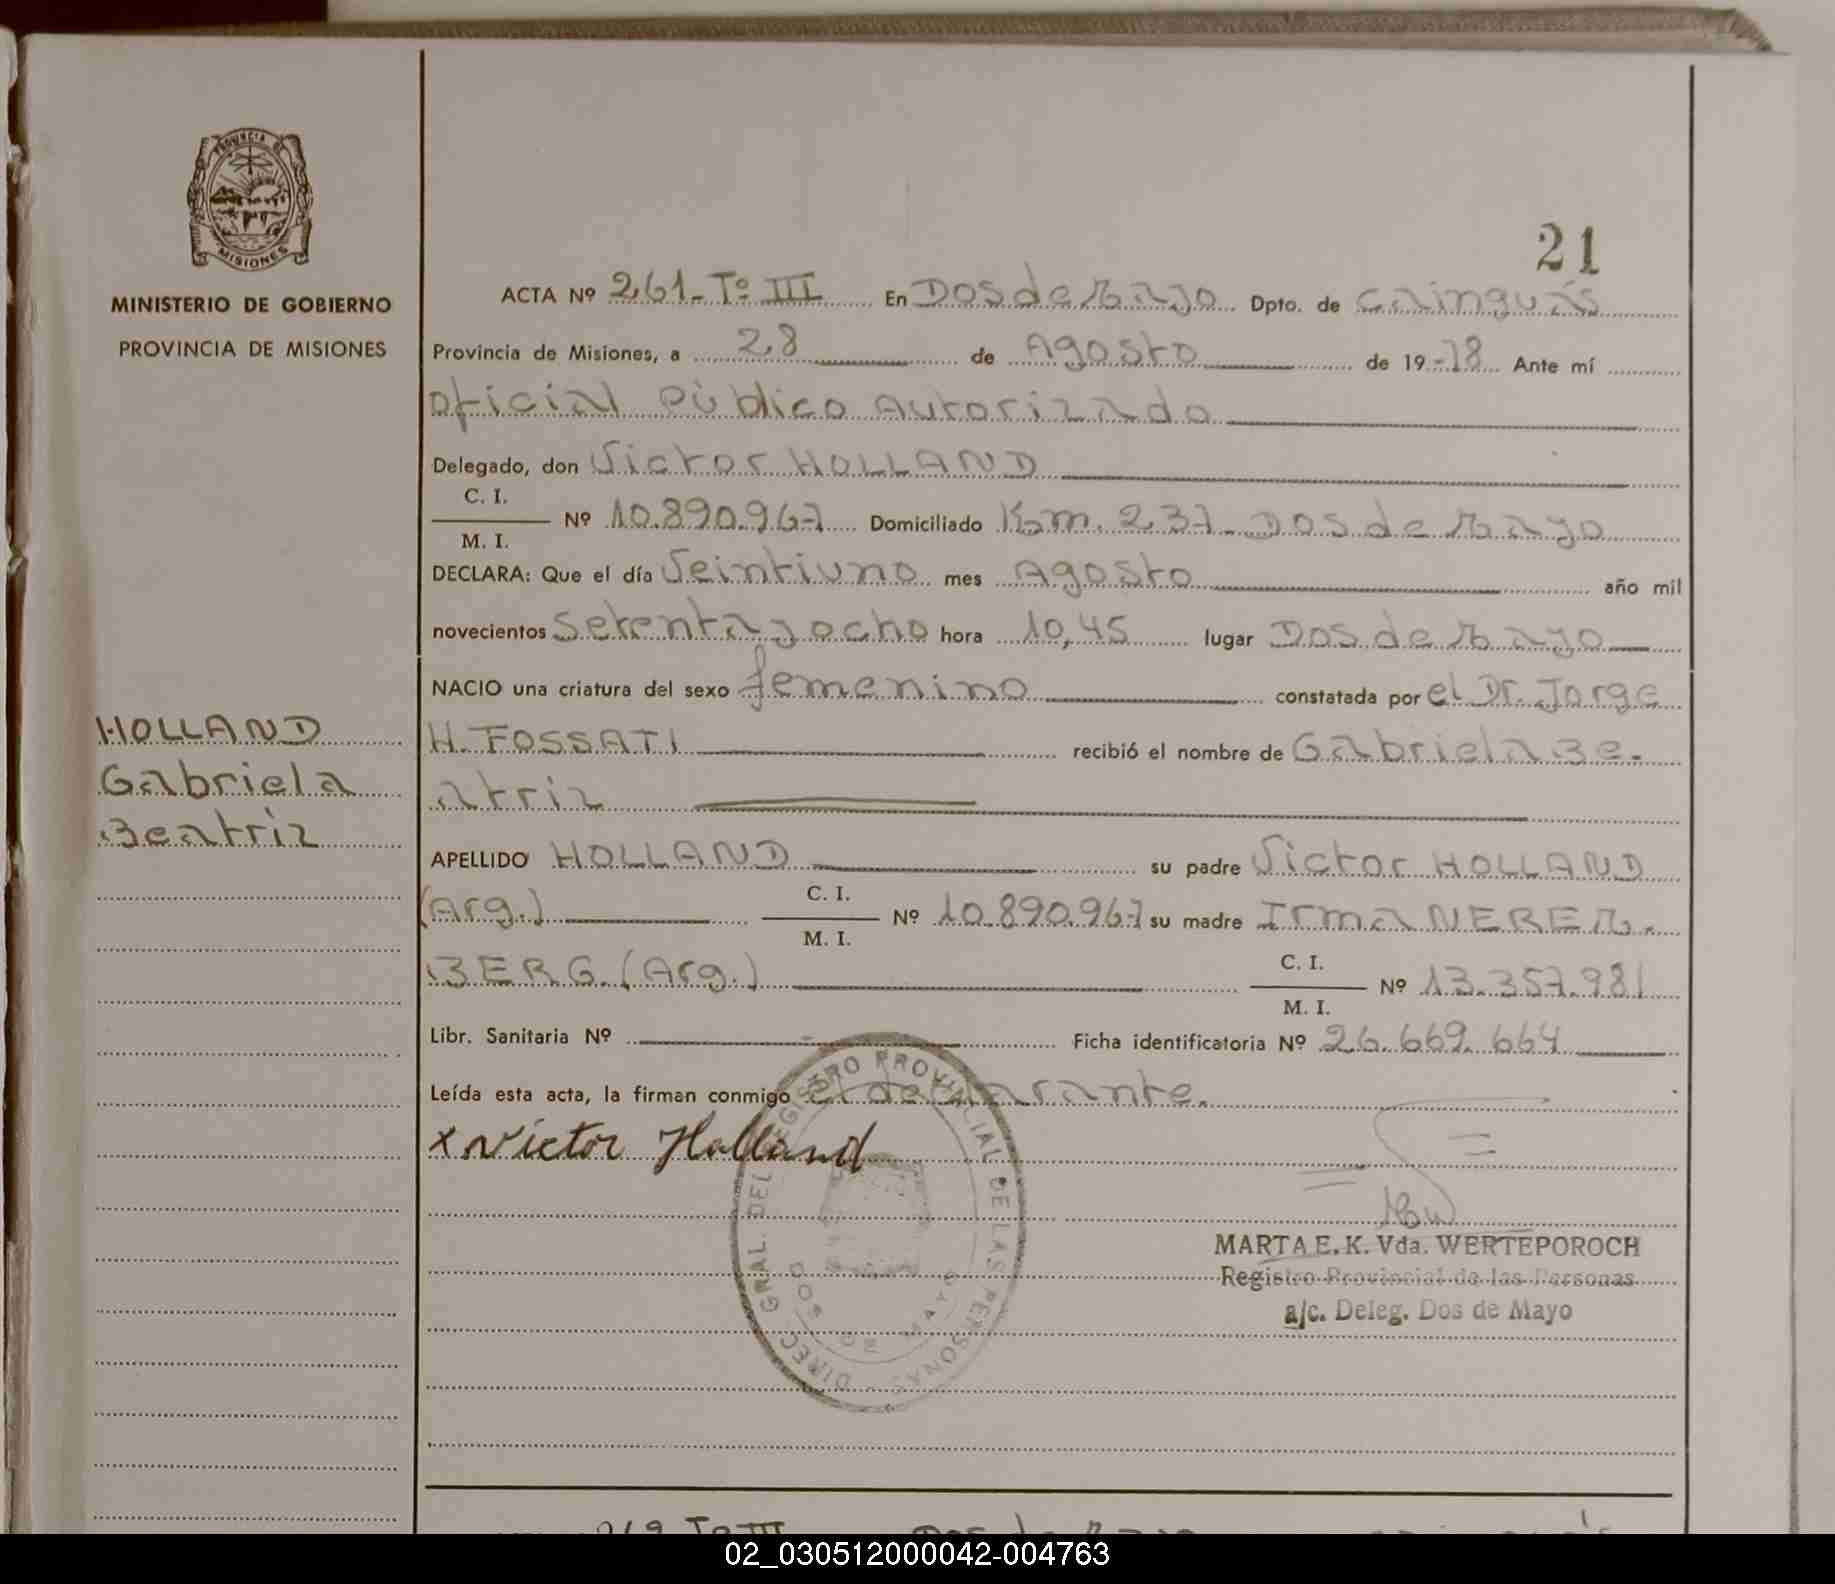 PROVINCIA DE
MISIONES
MINISTERIO DE GOBIERNO
PROVINCIA DE MISIONES
HOLLAND
Gabriela
Beatriz
21
ACTA Nº 261-Tº III En Dos de Mayo Dpto. de Cainguás
Provincia de Misiones, a 28 de Agosto de 19-78 Ante mí
oficial Público Autorizado
Delegado, don Victor HOLLAND
C. I.
M. I. Nº 10.890.967 Domiciliado Km. 237-Dos de Mayo
DECLARA: Que el día Veintiuno mes Agosto año mil
novecientos setenta y ocho hora 10,45 lugar Dos de Mayo
NACIO una criatura del sexo femenino constatada por el Dr. Jorge
H. FOSSATI recibió el nombre de Gabriela Be-
atriz
APELLIDO HOLLAND su padre Victor HOLLAND
(Arg.) C. I. M. I. Nº 10.890.967 su madre Irma NEREM-
BERG.(Arg.) C. I. M. I. Nº 13.357.981
Libr. Sanitaria Nº Ficha identificatoria Nº 26.669.664
Leída esta acta, la firman conmigo el declarante.
x Victor Holland
DIREC. GRAL. DEL REGISTRO PROVINCIAL DE LAS PERSONAS
DOS DE MAYO
MARTA E. K. Vda. WERTEPOROCH
Registro Provincial de las Personas
a/c. Deleg. Dos de Mayo
02_030512000042-004763